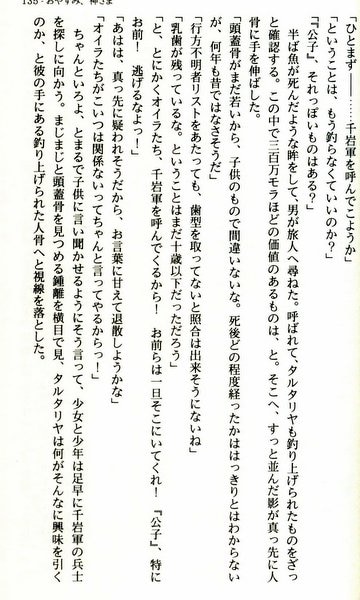 135 - おやすみ、神さま
「ひとまず………千岩軍を呼んでこようか」
「ということは、もう釣らなくていいのか？」
「『公子』、それっぽいものはある？」
　半ば魚が死んだような眸をして、男が旅人へ尋ねた。呼ばれて、タルタリヤも釣り上げられたものをざっ
と確認する。この中で三百万モラほどの価値のあるものは、と。そこへ、すっと並んだ影が真っ先に人
骨に手を伸ばした。
「頭蓋骨がまだ若いから、子供のもので間違いないな。死後どの程度経ったかははっきりとはわからない
が、何年も昔ではなさそうだ」
「行方不明者リストをあたっても、歯型を取ってないと照合は出来そうにないね」
「乳歯が残っているな。ということはまだ十歳以下だっただろう」
「と、とにかくオイラたち、千岩軍を呼んでくるから！　お前らは一旦そこにいてくれ！　『公子』、特に
お前！　逃げるなよっ！」
「あはは、真っ先に疑われそうだから、お言葉に甘えて退散しようかな」
「オイラたちがこいつは関係ないってちゃんと言ってやるからっ！」
　ちゃんといろよ、とまるで子供に言い聞かせるようにそう言って、少女と少年は足早に千岩軍の兵士
を探しに向かう。まじまじと頭蓋骨を見つめる鍾離を横目で見、タルタリヤは何がそんなに興味を引く
のか、と彼の手にある釣り上げられた人骨へと視線を落とした。